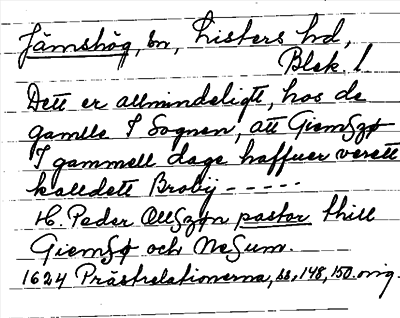 Jämshög, sn, Listers hd,
Blek. l
Dett er allmindeligt, hos de
gamlle I Sognen, att GiemSzø
I gammell dage haffuer verett
kalldett Brobÿ - - - - -
H. Peder OllSzøn pastor thill
GiemSø och NeSum.
1624 Prästrelationerna, ss, 148, 150. orig.